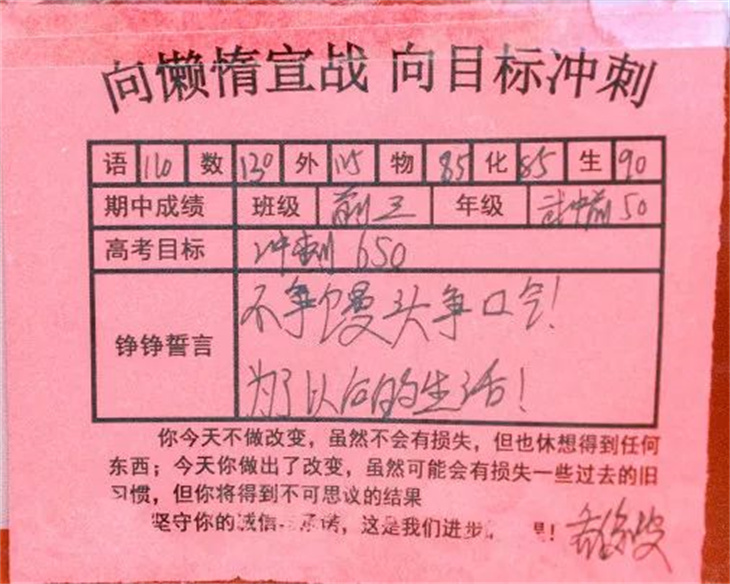 向懒惰宣战 向目标冲刺
语 110 数 130 外 115 物 85 化 85 生 90
期中成绩 班级 前三 年级 前50
高考目标 冲刺 650
不争馒头争口气!
铮铮誓言
为了以后的生活!
你今天不做改变，虽然不会有损失，但也休想得到任何
东西；今天你做出了改变，虽然可能会有损失一些过去的旧
习惯，但你将得到不可思议的结果
坚守你的诚信 承诺，这是我们进步 是!